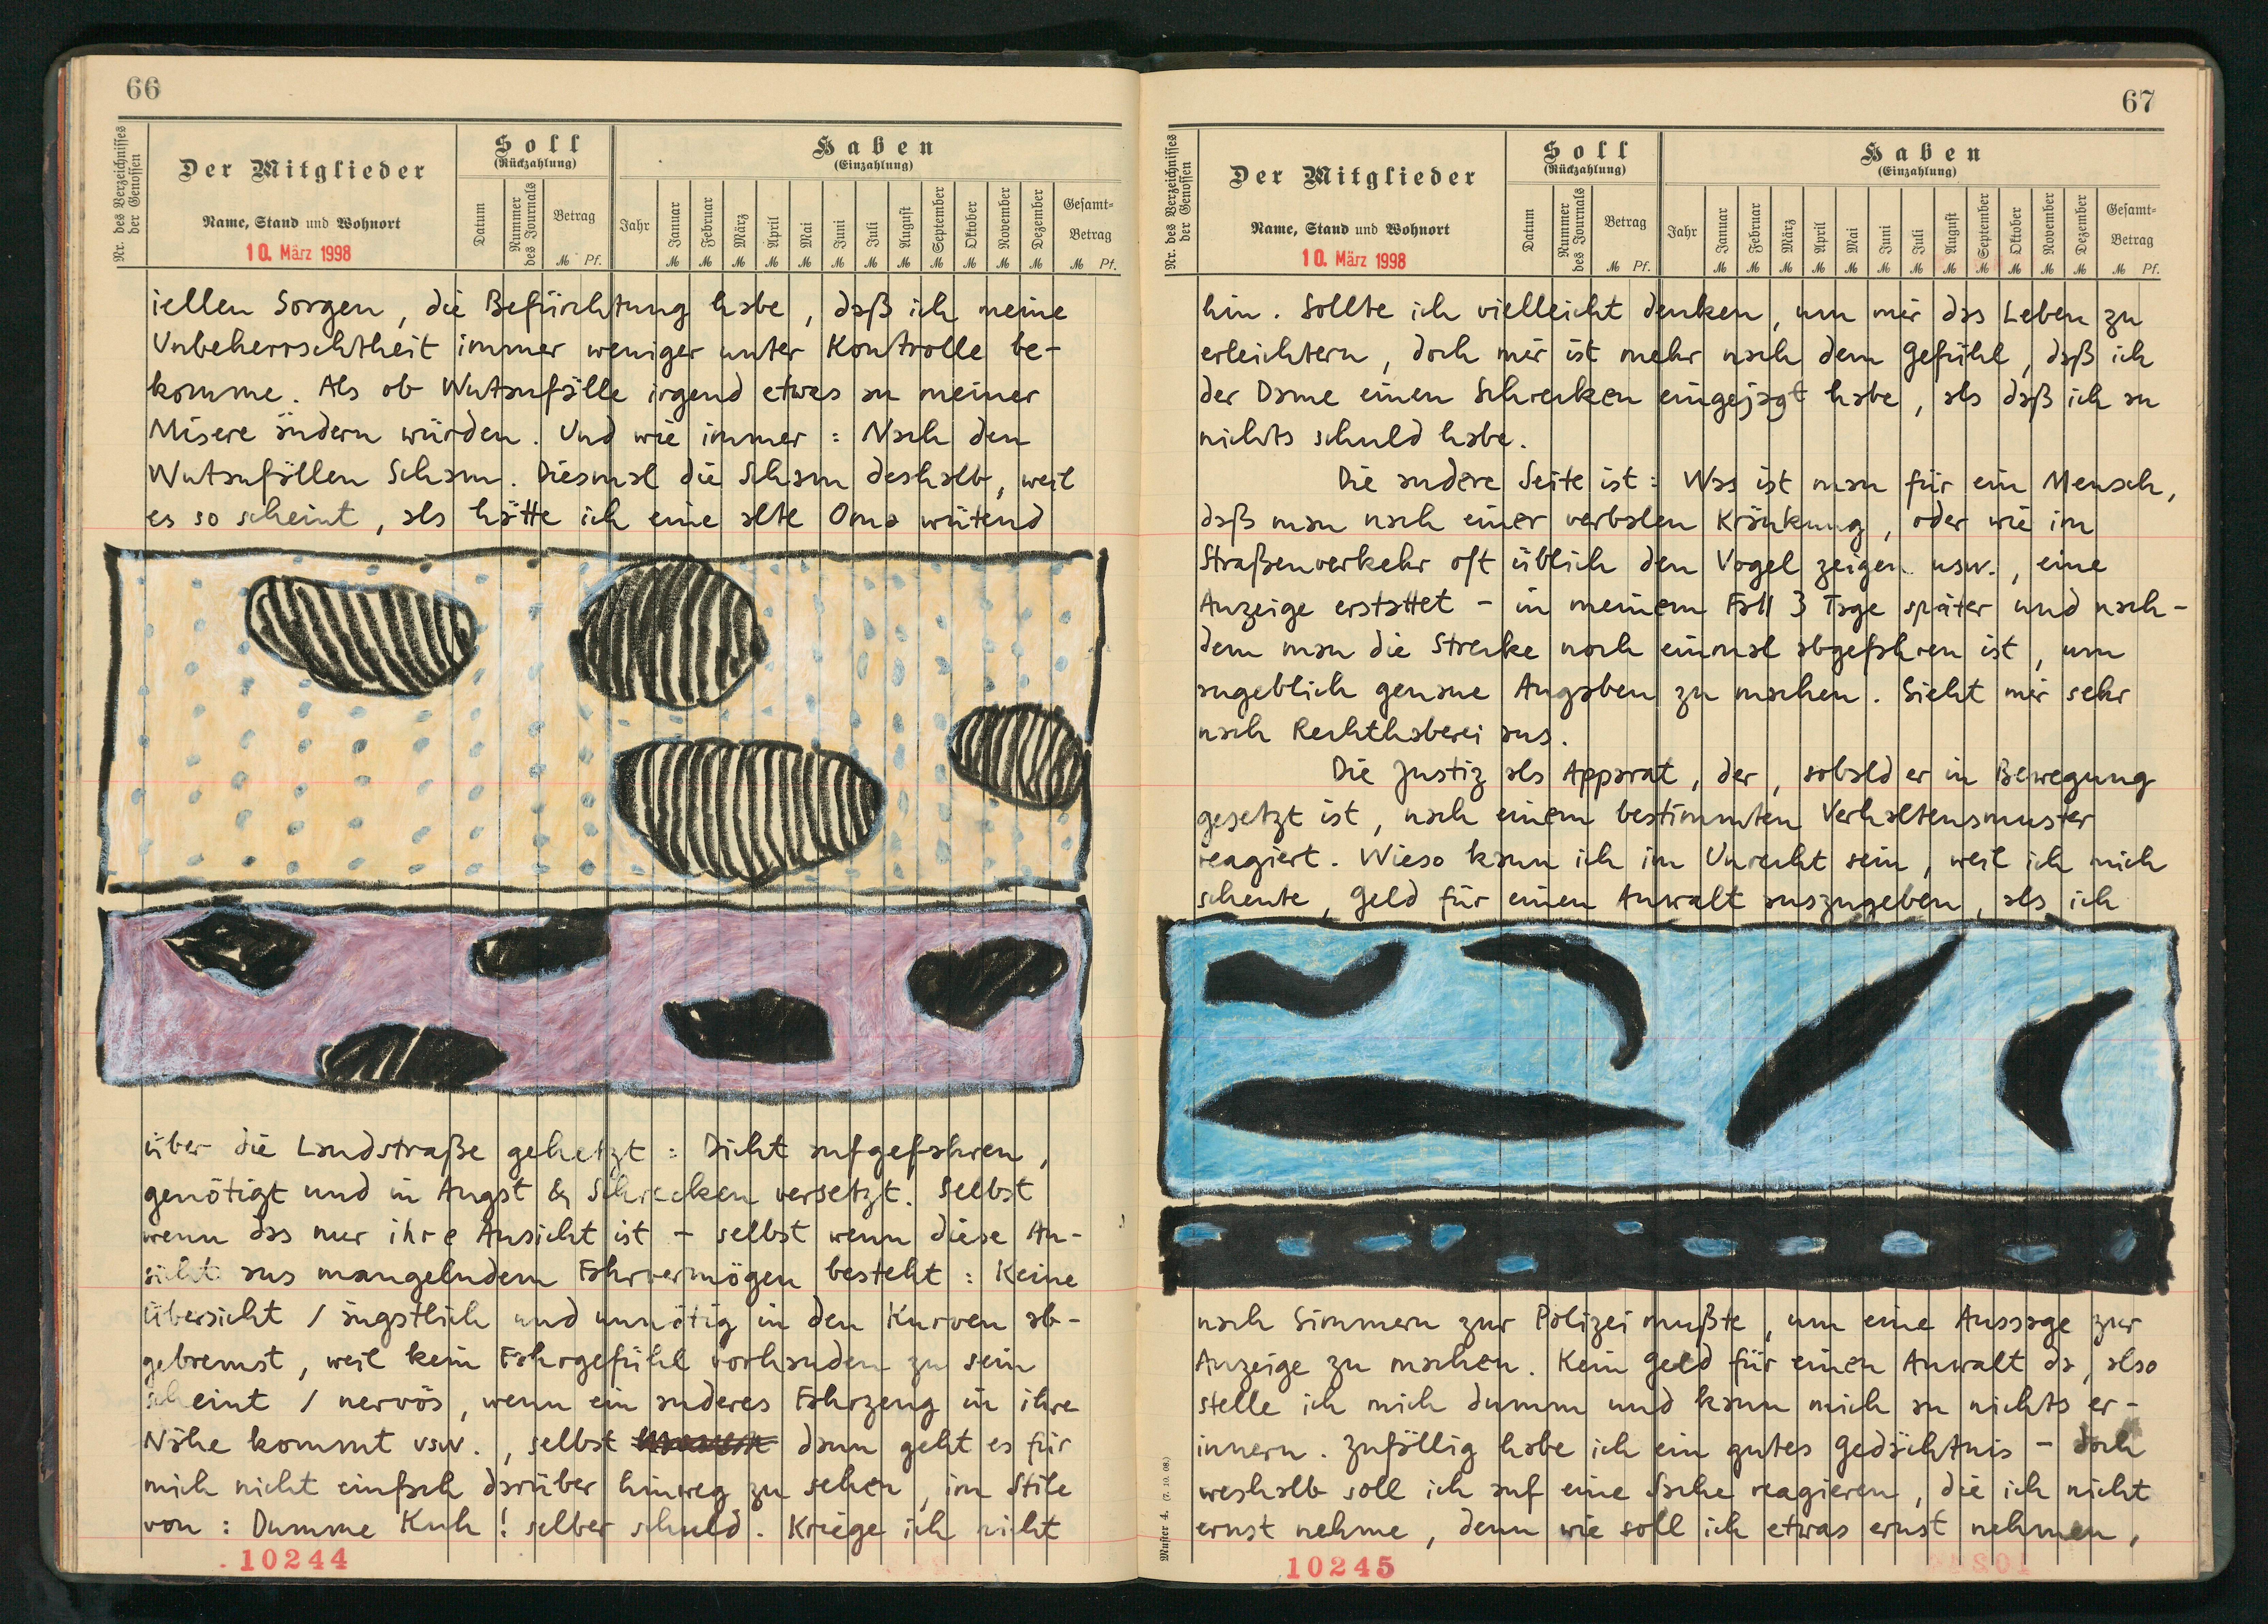 66
Nr. des Verzeichnisses der Genossen
Der Mitglieder
Name, Stand und Wohnort
10. März 1998
Soll
(Rückzahlung)
Datum
Nummer des Journals
Betrag
M Pf.
Haben
(Einzahlung)
Jahr
Januar
Februar
März
April
Mai
Juni
Juli
August
September
Oktober
November
Dezember
Gesamt-
Betrag
M M M M M M M M M M M M M Pf.
iellen Sorgen, die Befürchtung habe, daß ich meine
Unbeherrschtheit immer weniger unter Kontrolle be-
komme. Als ob Wutanfälle irgend etwas an meiner
Misere ändern würden. Und wie immer: Nach den
Wutanfällen Scham. Diesmal die Scham deshalb, weil
es so scheint, als hätte ich eine alte Oma wütend
über die Landstraße gehetzt: Dicht aufgefahren,
genötigt und in Angst & Schrecken versetzt. Selbst
wenn das nur ihre Ansicht ist - selbst wenn diese An-
sicht aus mangelndem Fahrvermögen besteht: Keine
Übersicht / ängstlich und unnötig in den Kurven ab-
gebremst, weil kein Fahrgefühl vorhanden zu sein
scheint / nervös, wenn ein anderes Fahrzeug in ihre
Nähe kommt usw., selbst dann geht es für
mich nicht einfach darüber hinweg zu sehen, im Stile
von: Dumme Kuh! selber schuld. Kriege ich nicht
10244
67
Nr. des Verzeichnisses der Genossen
Der Mitglieder
Name, Stand und Wohnort
10. März 1998
Soll
(Rückzahlung)
Datum
Nummer des Journals
Betrag
M Pf.
Haben
(Einzahlung)
Jahr
Januar
Februar
März
April
Mai
Juni
Juli
August
September
Oktober
November
Dezember
Gesamt-
Betrag
M M M M M M M M M M M M M Pf.
hin. Sollte ich vielleicht denken, um mir das Leben zu
erleichtern, doch mir ist mehr nach dem Gefühl, daß ich
der Dame einen Schrecken eingejagt habe, als daß ich an
nichts schuld habe.
Die andere Seite ist: Was ist man für ein Mensch,
daß man nach einer verbalen Kränkung, oder wie im
Straßenverkehr oft üblich den Vogel zeigen usw., eine
Anzeige erstattet - in meinem Fall 3 Tage später und nach-
dem man die Strecke noch einmal abgefahren ist, um
angeblich genaue Angaben zu machen. Sieht mir sehr
nach Rechthaberei aus.
Die Justiz als Apparat, der, sobald er in Bewegung
gesetzt ist, nach einem bestimmten Verhaltensmuster
reagiert. Wieso kann ich im Unrecht sein, weil ich mich
scheute, Geld für einen Anwalt auszugeben, als ich
nach Simmern zur Polizei mußte, um eine Aussage zur
Anzeige zu machen. Kein Geld für einen Anwalt da, also
stelle ich mich dumm und kann mich an nichts er-
innern. Zufällig habe ich ein gutes Gedächtnis - doch
weshalb soll ich auf eine Sache reagieren, die ich nicht
ernst nehme, denn wie soll ich etwas ernst nehmen,
Muster 4. (7. 10. 08.)
10245